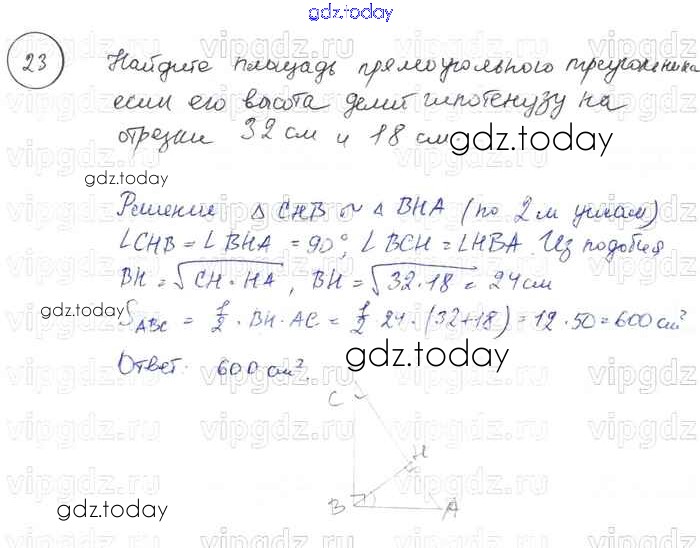 gdz.today
23
Найдите площадь прямоугольного треугольника
если его высота делит гипотенузу на
отрезки 32 см и 18 см.
gdz.today
gdz.today
Решение Δ CHB ~ Δ BHA (по 2м углам)
∠CHB = ∠BHA = 90°, ∠BCH = ∠HBA. Из подобия
BH = √CH·HA, BH = √32·18 = 24 см
gdz.today
S ABC = 1/2 · BH · AC = 1/2 24 · (32+18) = 12 · 50 = 600 см²
Ответ: 600 см².
gdz.today
C
H
B A
gdz.today
gdz.today